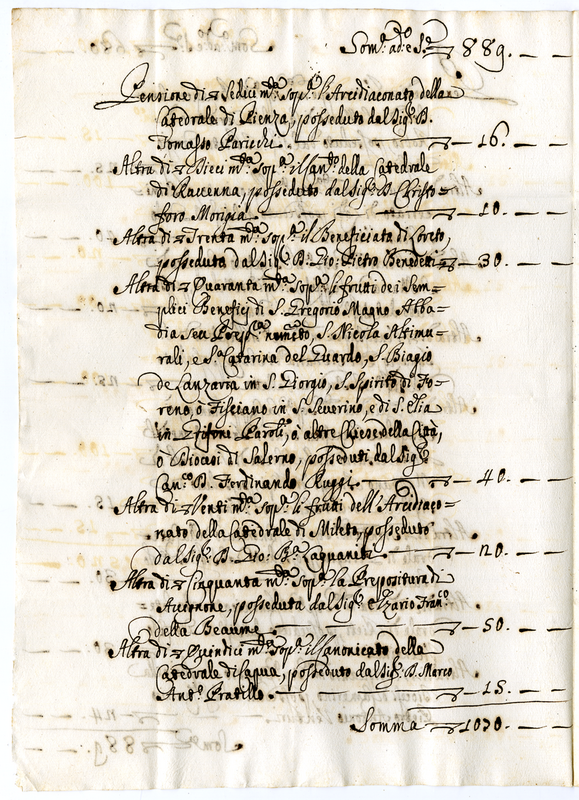 Som.ª ad.ᵉ S.ᵈⁱ 889.
Pensione di Sedici m.ᵗᵃ Sop.ª l'Arcidiaconato della
Catedrale di Pienza, posseduto dal Sig.ʳ D.
Tomasso Paricchi. 16.
Altra di Dieci m.ᵗᵃ Sop.ª il Can.ᵗᵒ della Catedrale
di Ravenna, posseduto dal Sig.ʳ D. Christo=
foro Morigia 10.
Altra di Trenta m.ᵗᵃ Sop.ª il Beneficiato di Loreto,
posseduto dal Sig.ʳ D. Gio: Pietro Benedetti 30.
Altra di Quaranta m.ᵗᵃ Sop.ª li frutti dei Sem=
plici Beneficj di S. Gregorio Magno Alba=
dia seu nom.ᵗᵒ, S. Nicola
rali, e S.ᵗᵃ Catarina del Guardo, S. Biagio
de Lanzarra in S. Giorgio, S. Spirito di Fo=
reno, ò Fisciano in S. Severino, e di S. Elia
in ò altre Chiese della Città,
ò Diocesi di Salerno, posseduti dal Sig.ʳ
Can.ᶜᵒ D. Ferdinando Ruggi. 40.
Altra di Venti m.ᵗᵃ Sop.ª li frutti dell'Arcidiaco=
nato della Catedrale di Mileto, posseduto
dal Sig.ʳ D. Gio: B.ᵗᵃ 20.
Altra di Cinquanta m.ᵗᵃ Sop.ª la Prepositura di
Avignone, posseduta dal Sig.ʳ Elzario Fran.ᶜᵒ
della Beaume. 50.
Altra di Quindici m.ᵗᵃ Sop.ª il Canonicato della
Catedrale di Capua, posseduto dal Sig.ʳ D. Marco
Ant.º Pratillo. 15.
Somma 1070.